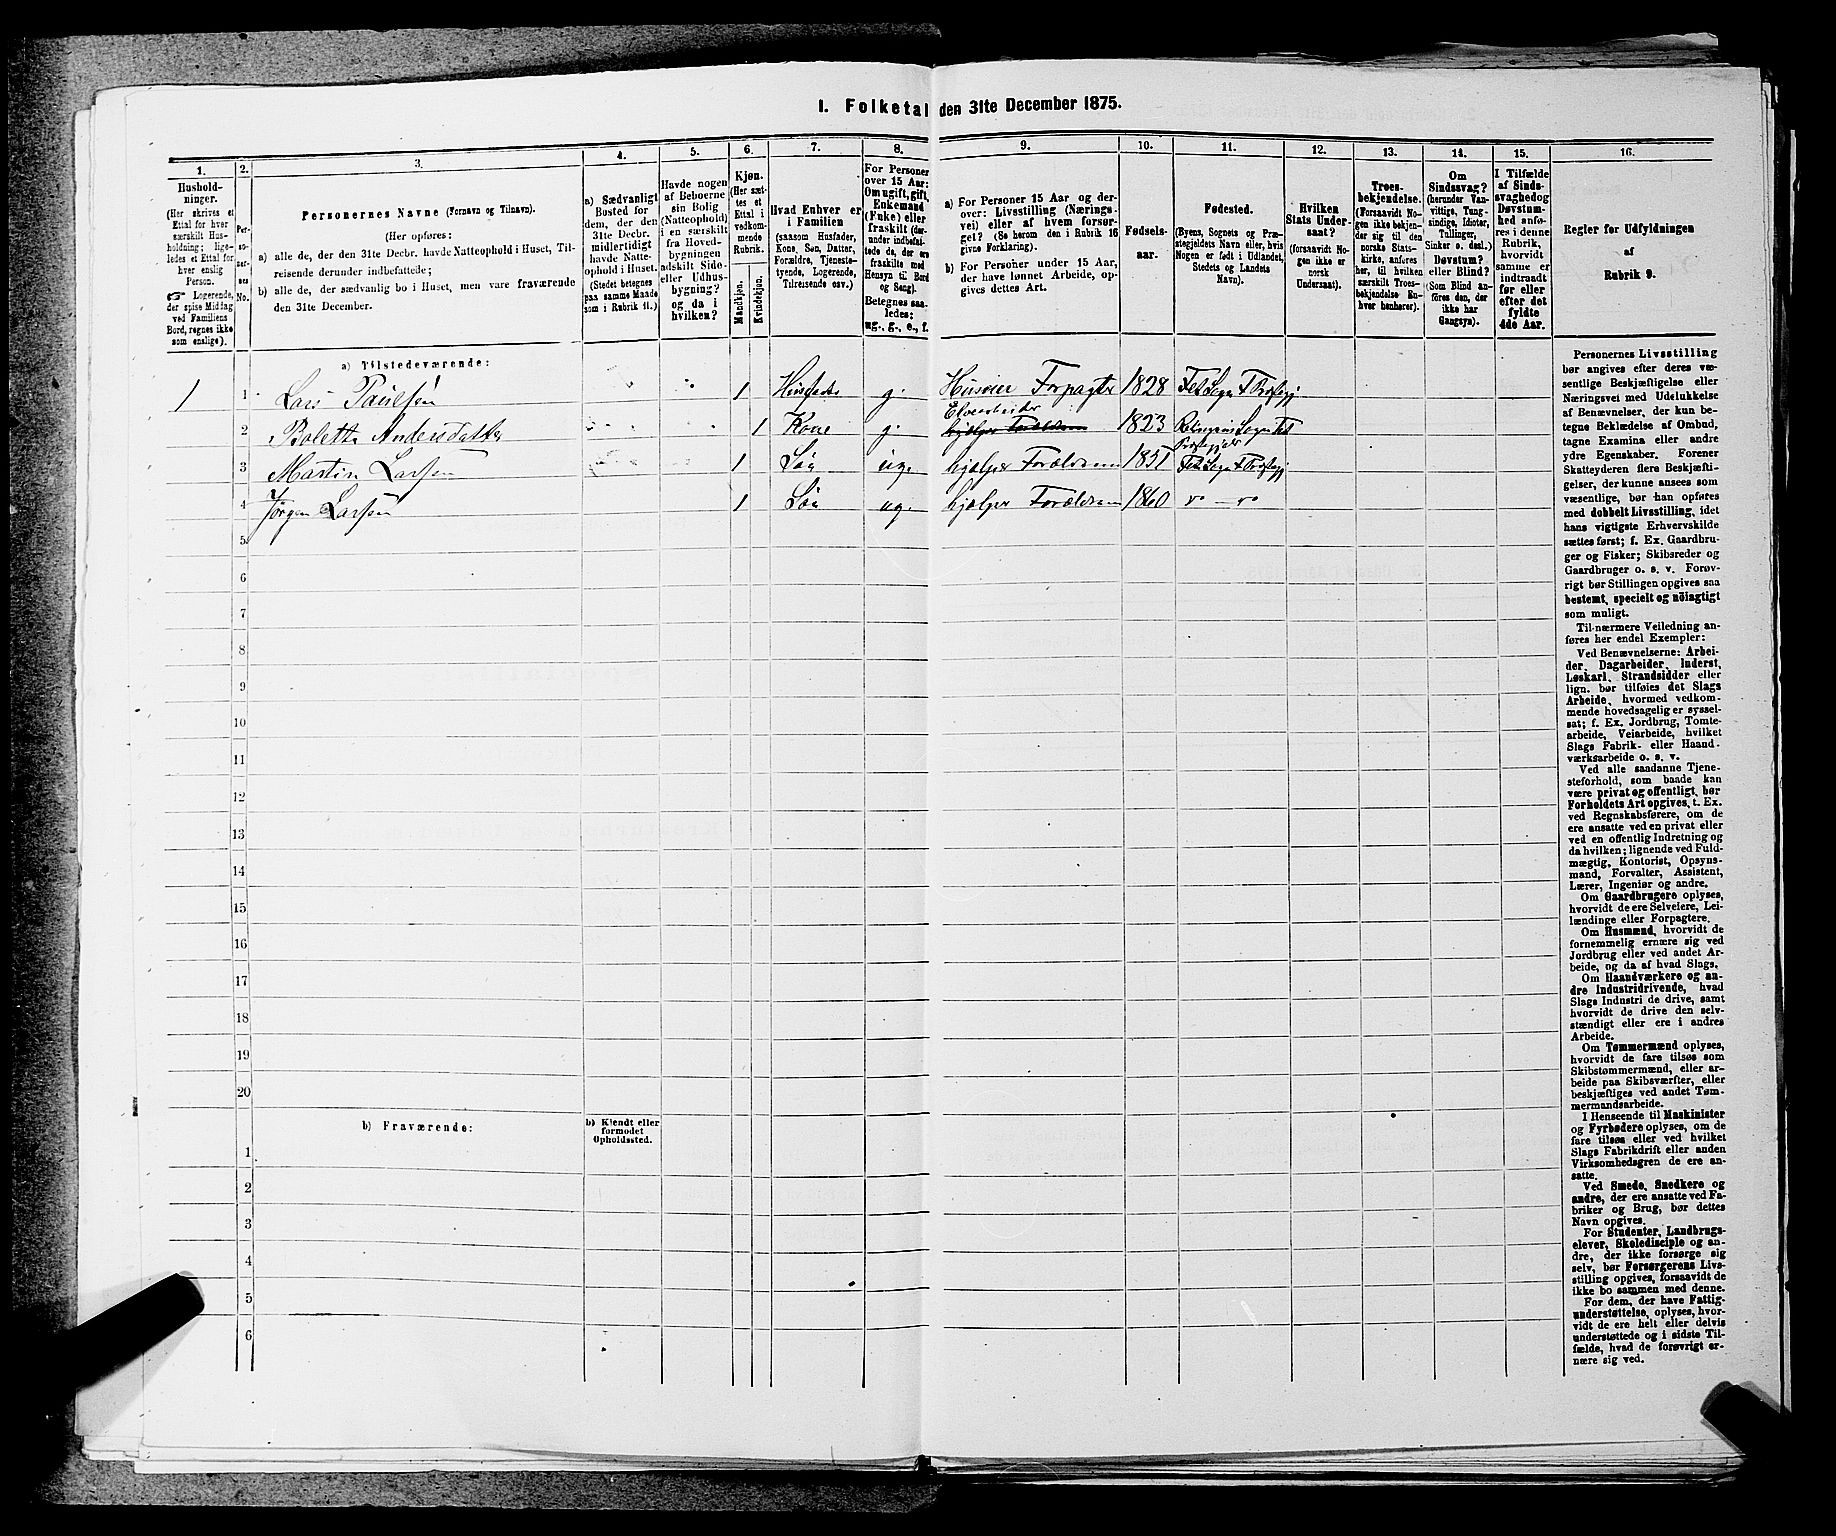 I. Folketal den 31te December 1875.
1.
Hushold-
ninger.
(Her skrives et
Ettal for hver
særskilt Hus-
holdning; lige-
ledes et Ettal for
hver enslig
Person.
☞ Logerende,
der spise Middag
ved Familiens
Bord, regnes ikke
som enslige).
2.
Per-
so-
ner-
nes
No.
3.
Personernes Navne (Fornavn og Tilnavn).
(Her opføres:
a) alle de, der den 31te Decbr. havde Natteophold i Huset, Til-
reisende derunder indbefattede;
b) alle de, der sædvanlig bo i Huset, men vare fraværende
den 31te December.
4.
a) Sædvanligt
Bosted for
dem, der den
31te Decbr.
midlertidigt
havde Natte-
ophold i Huset.
(Stedet betegnes
paa samme Maade
som i Rubrik 11.)
5.
Havde nogen
af Beboerne
sin Bolig
(Natteophold)
i en særskilt
fra Hoved-
bygningen
adskilt Side-
eller Udhus-
bygning?
og da i
hvilken?
6.
Kjøn.
(Her sæt-
tes et
Ettal i
vedkom-
mende
Rubrik.
Mandkjøn.
Kvindekjøn.
7.
Hvad Enhver er
i Familien
(saasom Husfader,
Kone, Søn, Datter,
Forældre, Tjeneste-
tyende, Logerende,
Tilreisende osv.)
8.
For Personer
over 15 Aar:
Om ugift, gift,
Enkemand
(Enke) eller
fraskilt (der-
under indbefat-
tede de, der ere
fraskilte med
Hensyn til Bord
og Seng).
Betegnes saa-
ledes:
ug., g., e., f.
9.
a) For Personer 15 Aar og der-
over: Livsstilling (Nærings-
vei) eller af hvem forsør-
get? (Se herom den i Rubrik 16
givne Forklaring).
b) For Personer under 15 Aar,
der have lønnet Arbeide, op-
gives dettes Art.
10.
Fødsels-
aar.
11.
Fødested.
(Byens, Sognets og Præ-
stegjeldets Navn eller, hvis
Nogen er født i Udlandet,
Stedets og Landets
Navn).
12.
Hvilken
Stats Under-
saat?
(forsaavidt No-
gen ikke er
norsk
Undersaat).
13.
Troes-
bekjendelse.
(Forsaavidt No-
gen ikke bekjen-
der sig til den
norske Stats-
kirke, anføres
her, til hvilken
særskilt Troes-
bekjendelse En-
hver henhører).
14.
Om
Sindssvag?
(herunder Van-
vittige, Tung-
sindige, Idioter,
Tullinger,
Sinker o. desl.)
Døvstum?
eller Blind?
(Som Blind an-
føres den, der
ikke har
Gangsyn).
15.
I Tilfælde
af Sinds-
svaghed og
Døvstum-
hed anfø-
res i denne
Rubrik,
hvorvidt
samme er
indtraadt
før eller
efter det
fyldte
4de Aar.
16.
Regler for Udfyldningen
af
Rubrik 9.
a) Tilstedeværende:
1 1 Lars Paulsen 1 Husfader g. Huseier Forpagter 1828 Fet Sogn F Præstegj
Elvearbeider
2 Bolette Andersdatter 1 Kone g. hjælper Forældrene 1823 Sogn Fet
Præstegjeld
3 Martin Larsen 1 Søn ug. hjælper Forældrene 1857 Fet Sogn F Præstegj
4 Jørgen Larsen 1 Søn ug. hjælper Forældrene 1860 vo — vo
5
6
7
8
9
10
11
12
13
14
15
16
17
18
19
20
b) Fraværende:
b) Kjendt eller
formodet
Opholdssted.
1
2
3
4
5
6
Personernes Livsstilling
bør angives efter deres væ-
sentlige Beskjæftigelse eller
Næringsvei med Udelukkelse
af Benævnelser, der kun be-
tegne Beklædelse af Ombud,
tagne Examina eller andre
ydre Egenskaber. Forener
Skatteyderen flere Beskjæfti-
gelser, der kunne ansees som
væsentlige, bør han opføres
med dobbelt Livsstilling, idet
hans vigtigste Erhvervskilde
sættes først; f. Ex. Gaardbru-
ger og Fisker; Skibsreder og
Gaardbruger o. s. v. Forøv-
rigt bør Stillingen opgives saa
bestemt, specielt og nöiagtigt
som muligt.
Til nærmere Veiledning an-
føres her endel Exempler:
Ved Benævnelserne: Arbei-
der, Dagarbeider, Inderst,
Løskarl, Strandsidder eller
lign. bør tilføies det Slags
Arbeide, hvormed vedkom-
mende hovedsagelig er syssel-
sat; f. Ex. Jordbrug, Tomte-
arbeide, Veiarbeide, hvilket
Slags Fabrik- eller Haand-
værksarbeide o. s. v.
Ved alle saadanne Tjene-
steforhold, som baade kan
være privat og offentligt, bør
Forholdets Art opgives, t. Ex.
ved Regnskabsførere, om de
ere ansatte ved en privat eller
ved en offentlig Indretning og
da hvilken; lignende ved Fuld-
mægtig, Kontorist, Opsyns-
mand, Forvalter, Assistent,
Lærer, Ingeniør og andre.
Om Gaardbrugere oplyses,
hvorvidt de ere Selveiere, Lei-
lændinge eller Forpagtere.
Om Husmænd, hvorvidt de
fornemmelig ernære sig ved
Jordbrug eller ved andet Ar-
beide, og da af hvad Slags.
Om Haandværkere og an-
dre Industridrivende, hvad
Slags Industri de drive, samt
hvorvidt de drive den selv-
stændigt eller ere i andres
Arbeide.
Om Tømmermænd oplyses,
hvorvidt de fare tilsøs som
Skibstømmermænd, eller ar-
beide paa Skibsværfter, eller
beskjæftiges ved andet Tøm-
mermandsarbeide.
I Henseende til Maskinister
og Fyrbødere oplyses, om de
fare tilsøs eller ved hvilket
Slags Fabrikdrift eller anden
Virksomhedsgren de ere an-
satte.
Ved Smede, Snedkere og
andre, der ere ansatte ved Fa-
briker og Brug, bør dettes
Navn opgives.
For Studenter, Landbrugs-
elever, Skoledisciple og an-
dre, der ikke forsørge sig
selv, bør Forsørgerens Livs-
stilling opgives, forsaavidt de
ikke bo sammen med denne.
For dem, der have Fattig-
understøttelse, oplyses, hvor-
vidt de ere helt eller delvis
understøttede og i sidste Til-
fælde, hvad de forøvrigt er-
nære sig ved.